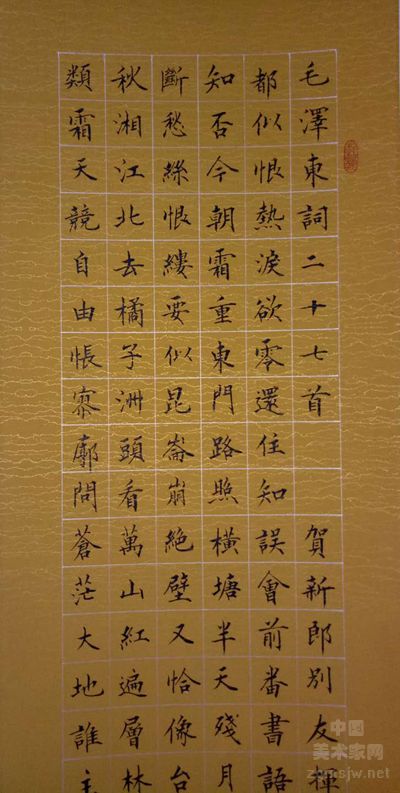 毛澤東詞二十七首　賀新郎別友揮
都似恨熱淚欲零還住知誤會前番書語
知否今朝霜重東門路照橫塘半天殘月
斷愁絲恨縷要似昆崙崩絕壁又恰像台
秋湘江北去橘子洲頭看萬山紅遍層林
類霜天競自由悵寥廓問蒼茫大地誰主
中国
美术家网